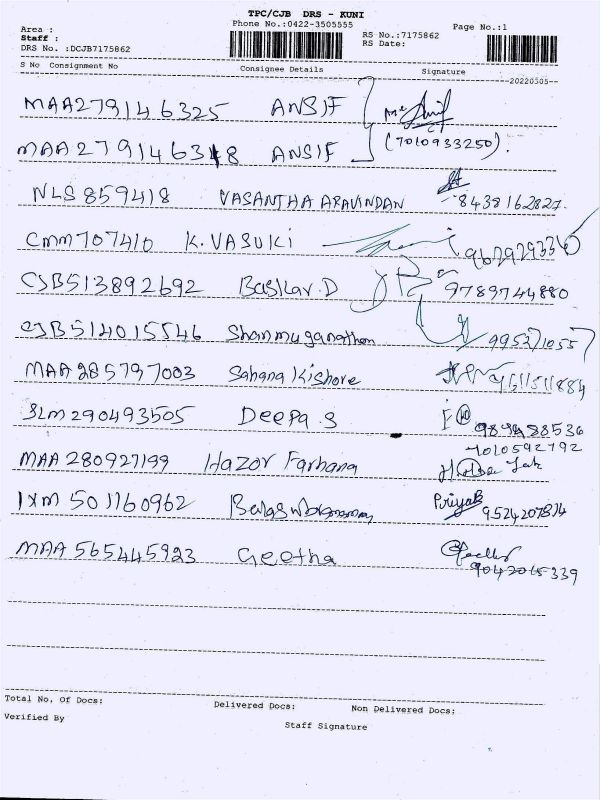 TPC/CJB DRS - KUNI
Phone No.:0422-3505555
Area :
Staff :
DRS No. :DCJB7175862
RS No.:7175862
RS Date:
Page No.:1
S No Consignment No Consignee Details Signature
20220505
MAA279146325 ANSIF
MAA279146318 ANSIF (7010933250).
NLS859418 VASANTHA ARAVINDAN 8438162827.
CMM707410 K.VASUKI
CJB513892692 Baskar.D 9789744880
CJB514015546 Shanmuganathan 9952710557
MAA285797003 Sahana Kishore
SLM290493505 Deepa.S
7010592792
MAA280927199 Hazor Farhana
IXM501160962 Balasubramaniam Priya
MAA565445923 Geetha
Total No. Of Docs: Delivered Docs: Non Delivered Docs:
Verified By
Staff Signature